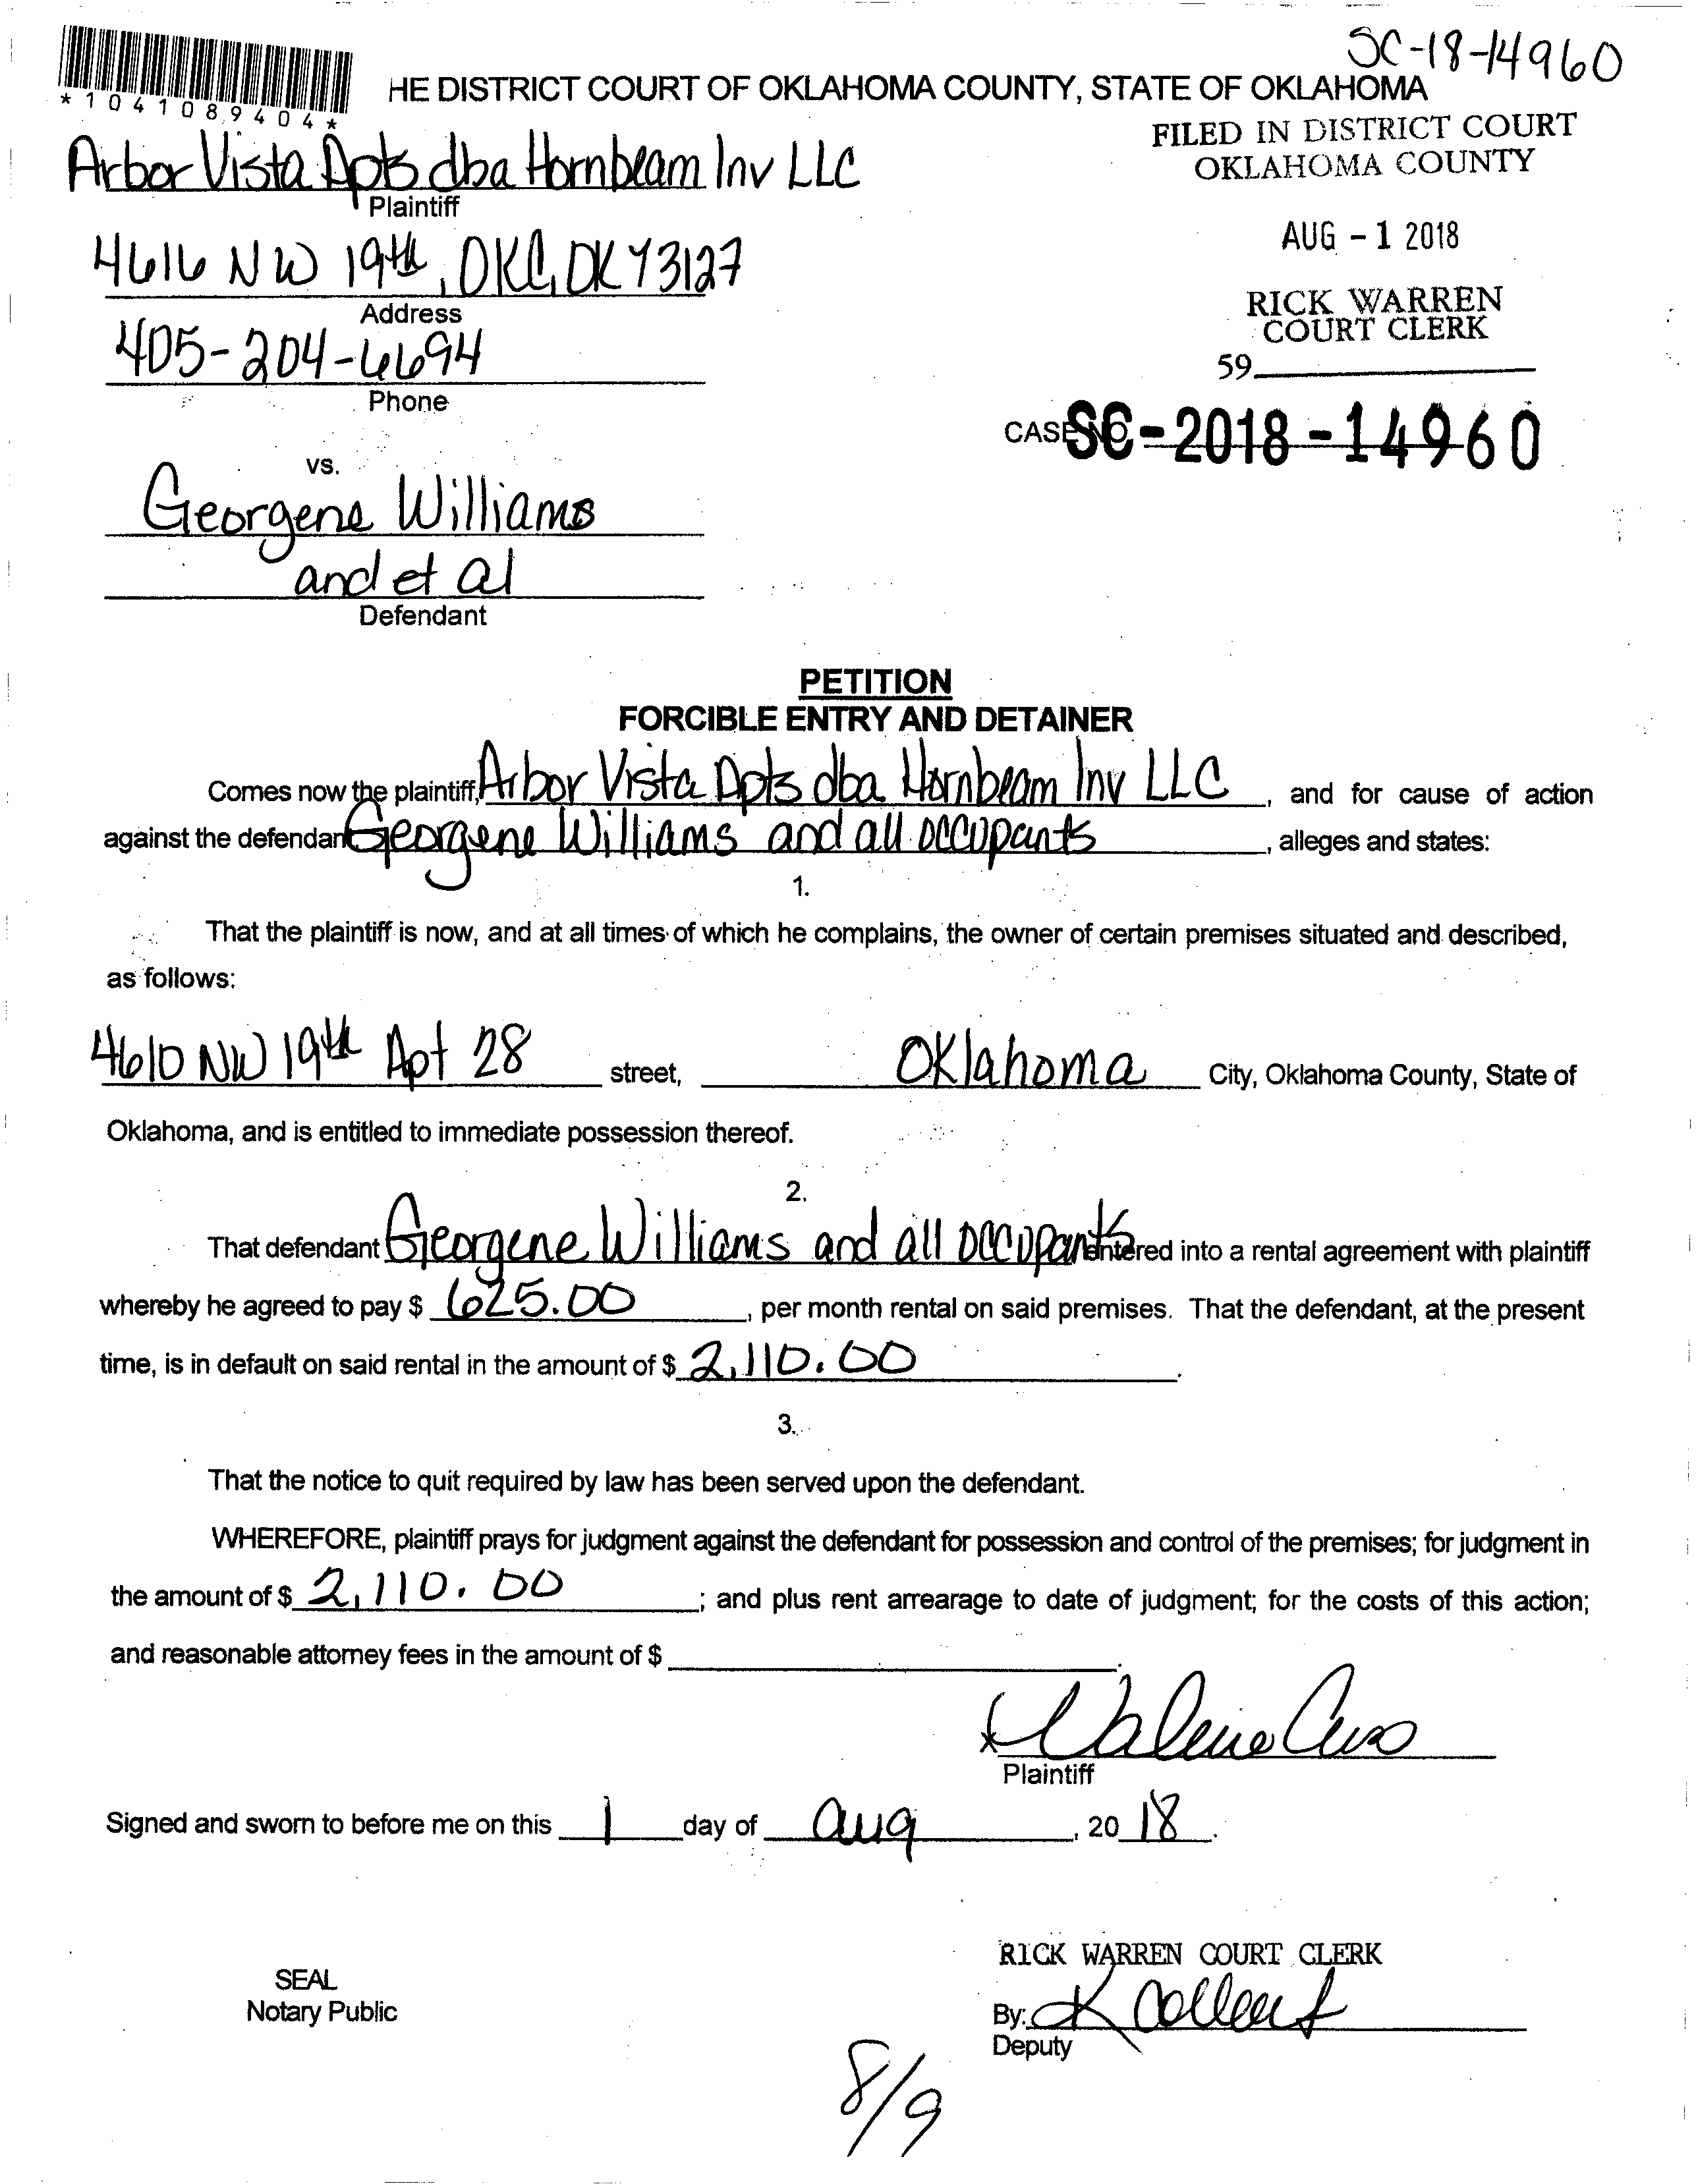 SC-18-14960
*1041089404*
HE DISTRICT COURT OF OKLAHOMA COUNTY, STATE OF OKLAHOMA
FILED IN DISTRICT COURT
OKLAHOMA COUNTY
AUG - 1 2018
RICK WARREN
COURT CLERK
59
Arbor Vista Apts dba Hornbeam Inv LLC
Plaintiff
4616 NW 19th, OKC, OK 73127
Address
405-204-6694
Phone
CASE NO. SC-2018-14960
vs.
Georgene Williams
and et al
Defendant
PETITION
FORCIBLE ENTRY AND DETAINER
Comes now the plaintiff, Arbor Vista Apts dba Hornbeam Inv LLC, and for cause of action
against the defendant Georgene Williams and all occupants, alleges and states:
1.
That the plaintiff is now, and at all times of which he complains, the owner of certain premises situated and described,
as follows:
4610 NW 19th Apt 28 street, Oklahoma City, Oklahoma County, State of
Oklahoma, and is entitled to immediate possession thereof.
2.
That defendant Georgene Williams and all occupants entered into a rental agreement with plaintiff
whereby he agreed to pay $ 625.00, per month rental on said premises. That the defendant, at the present
time, is in default on said rental in the amount of $ 2,110.00.
3.
That the notice to quit required by law has been served upon the defendant.
WHEREFORE, plaintiff prays for judgment against the defendant for possession and control of the premises; for judgment in
the amount of $ 2,110.00; and plus rent arrearage to date of judgment; for the costs of this action;
and reasonable attorney fees in the amount of $
Plaintiff
Signed and sworn to before me on this 1 day of Aug, 2018.
RICK WARREN COURT CLERK
SEAL
Notary Public
By:
Deputy
8/9